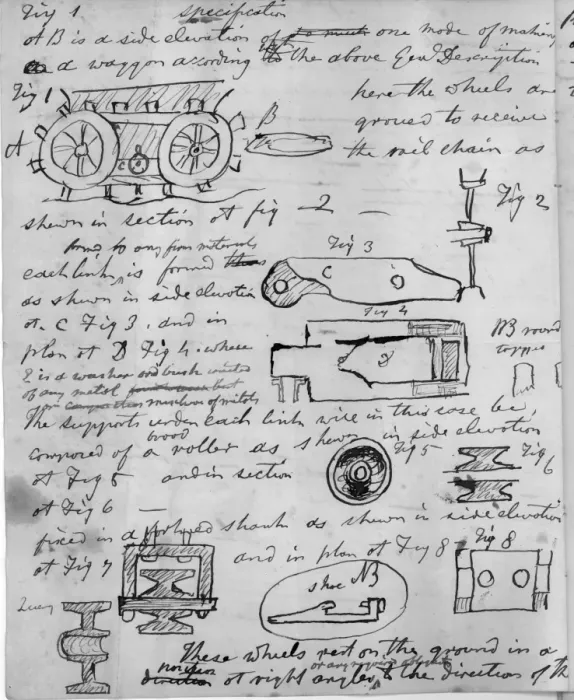 Fig 1 specification
At B is a side elevation of one mode of making
a waggon according to the above Genl Description
Fig 1
here the wheels are
B
grooved to receive
A
the rail chain as
C
shewn in section at fig 2
Fig 2
formed to any firm materials
Fig 3
each link is formed thus
C
as shewn in side elevation
at C Fig 3. and in
Fig 4
plan at D Fig 4. where
NB round
E is a washer and bush
of any metal
mixture of metals
The supports under each link will in this case be
composed of a broad roller as shewn in side elevation
at Fig 5 and in section
Fig 5
Fig 6
at Fig 6
fixed in a shank as shewn in side elevation
at Fig 7 and in plan at Fig 8
Fig 8
shoe NB
These wheels rest on the ground in a
position
direction at right angles to the direction of th